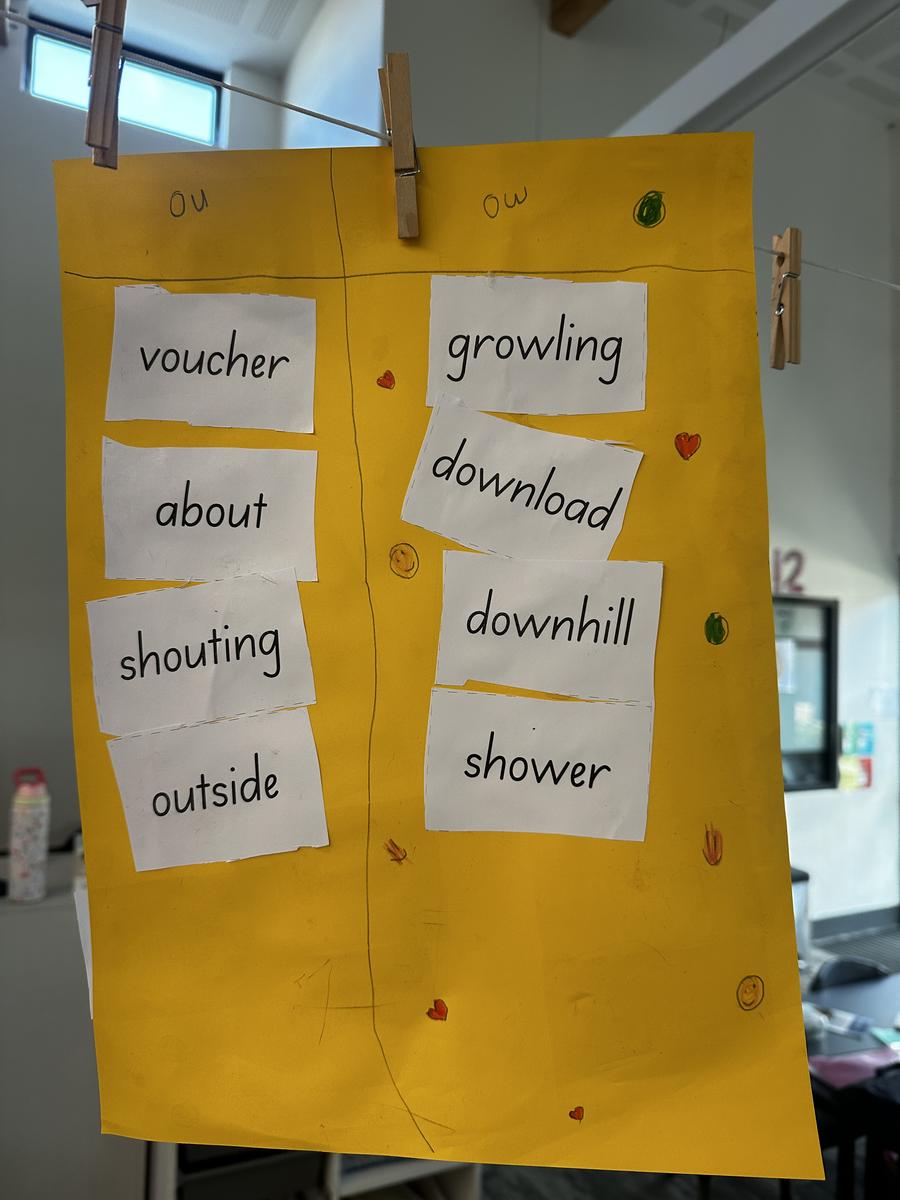 ou
ow
voucher
about
shouting
outside
growling
download
downhill
shower
12